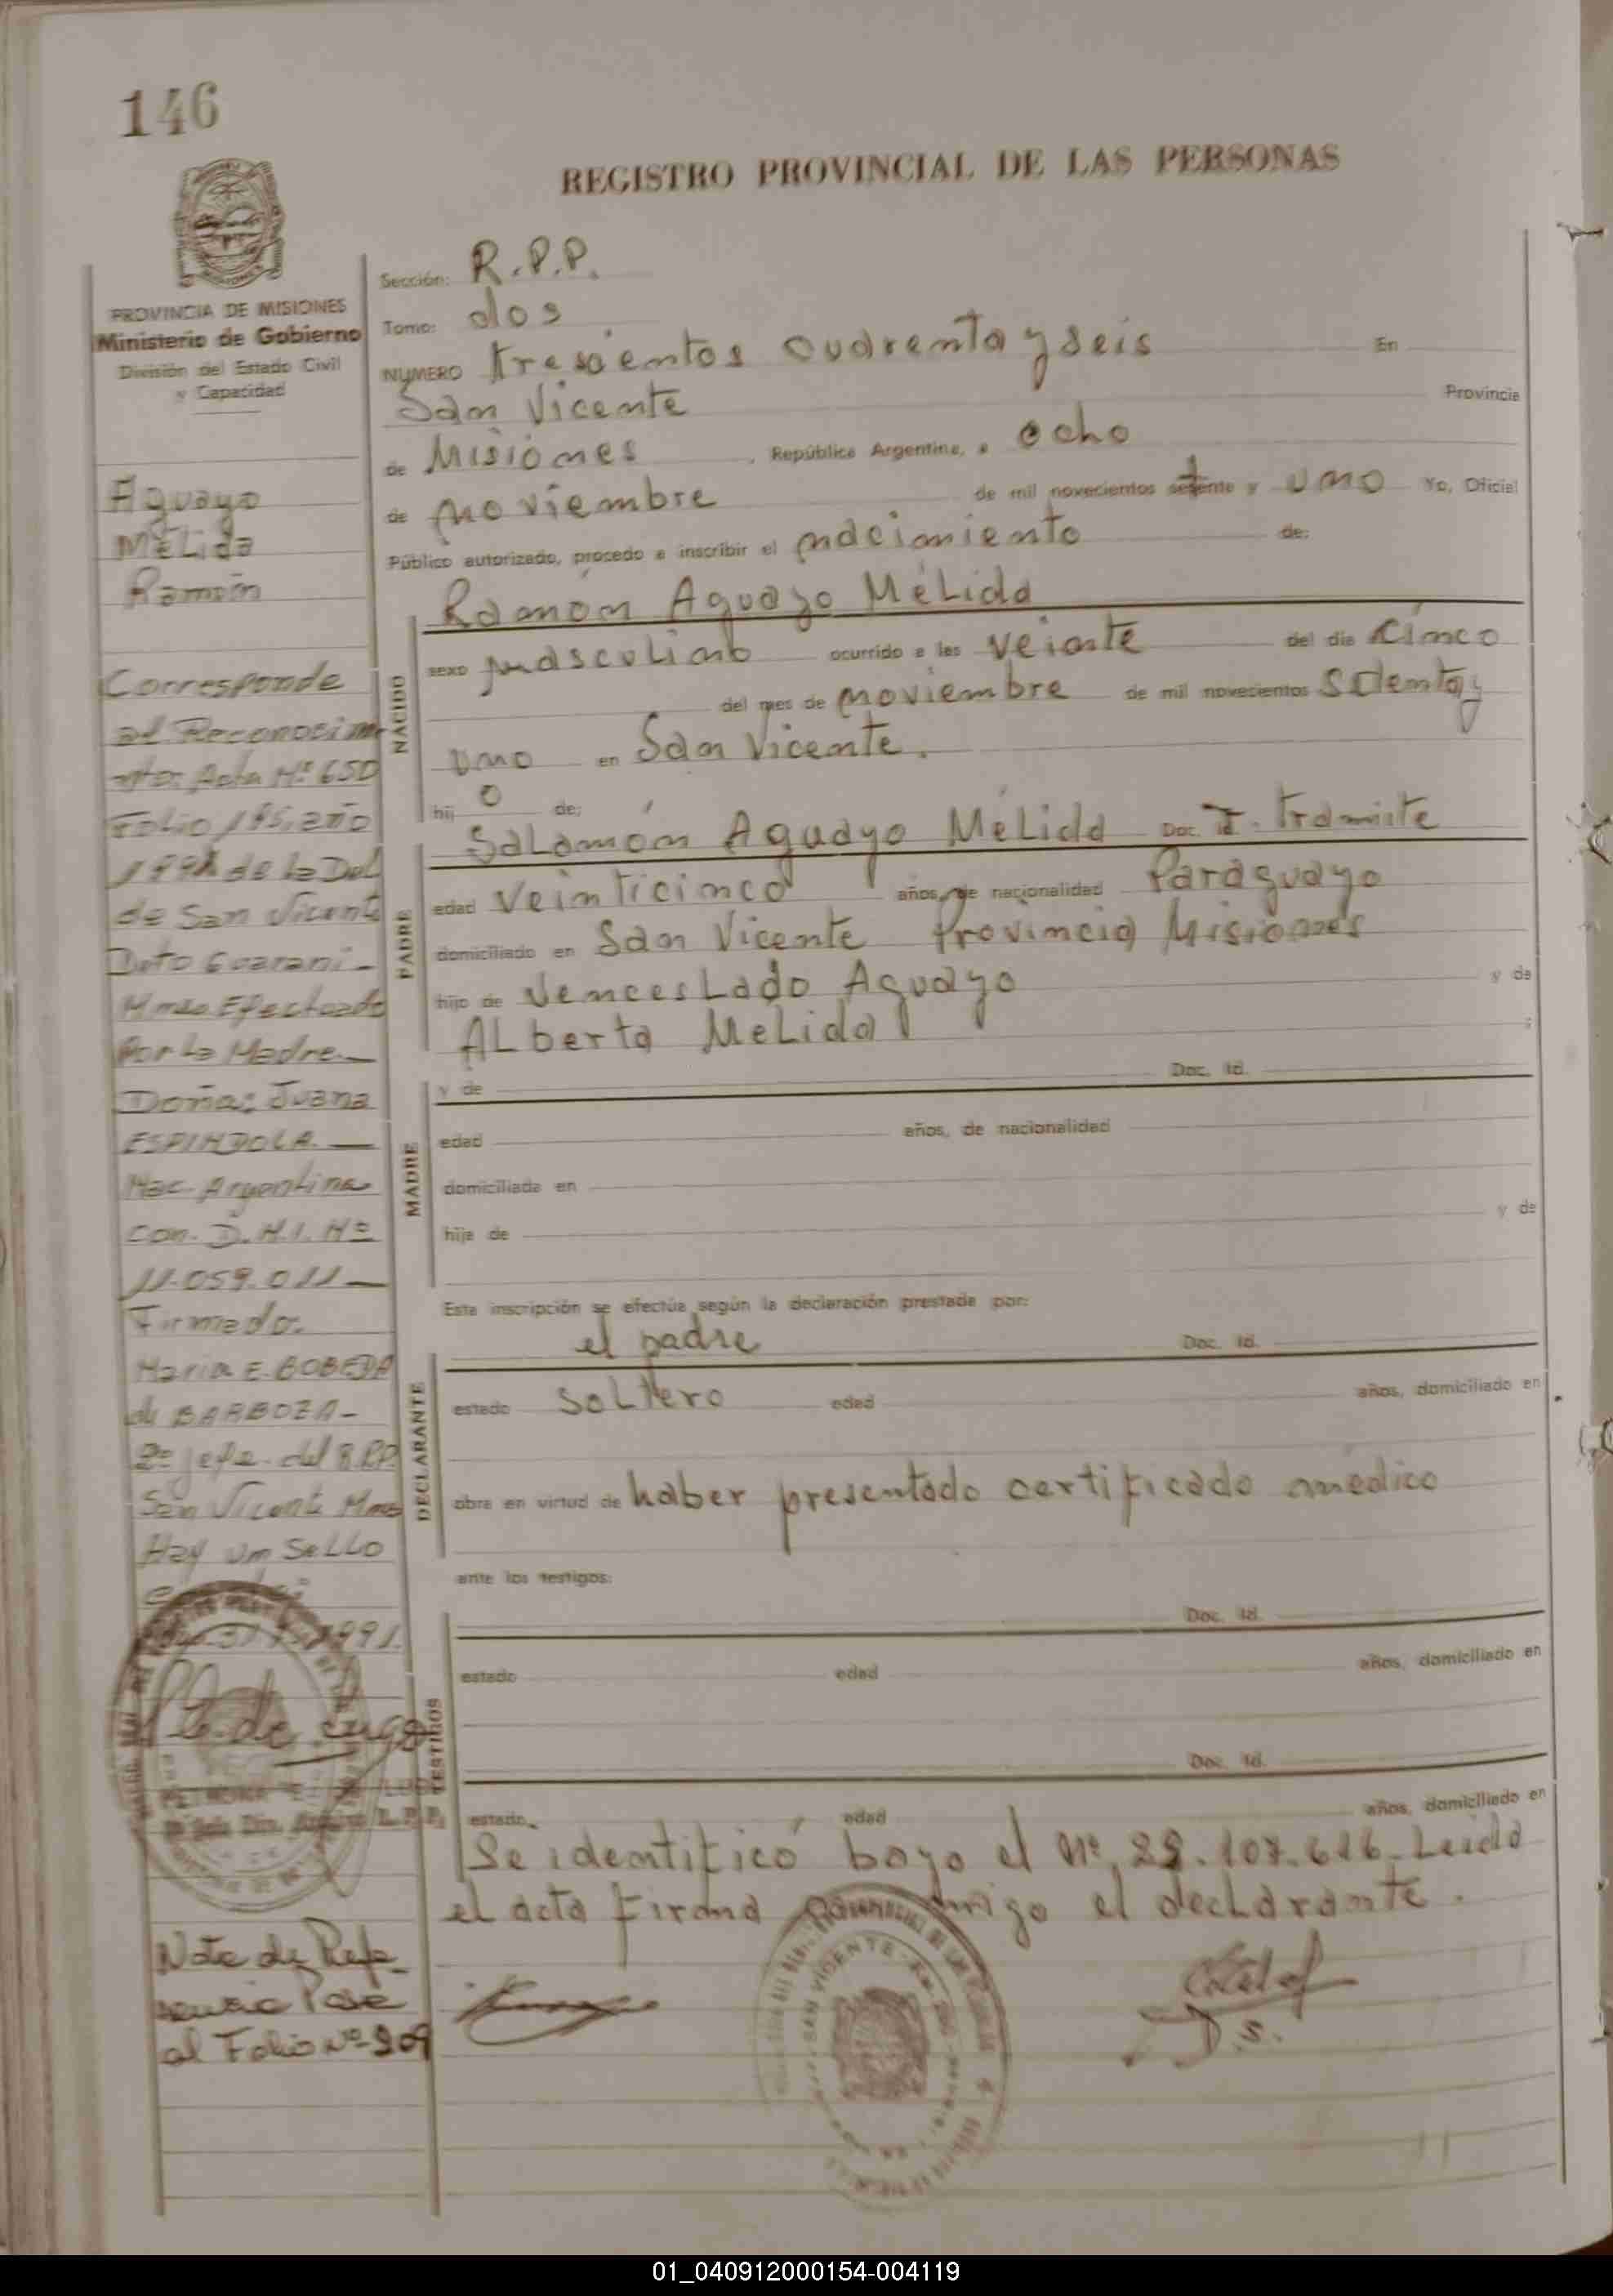 146
REGISTRO PROVINCIAL DE LAS PERSONAS
PROVINCIA DE MISIONES
Ministerio de Gobierno
División del Estado Civil
y Capacidad
Aguayo
MéLida
Ramón
Corresponde
al Reconocimi
nto: Acta Nº 650
Folio 195, año
1991 de la Del
de San Vicente
Dpto Guaraní-
Mnes Efectuado
Por la Madre.
Doña: Juana
ESPINDOLA.
Nac. Argentina
con. D.N.I. Nº
11.059.011
Firmado.
Maria E. BOBEDA
de BARBOZA-
2º Jefe. del R.P.P.
San Vicente Mnes
Hay un SeLLO
1991.
Nota de Refe-
rencia Pase
al Folio Nº 209
Sección: R.P.P.
Tomo: dos
NUMERO trescientos cuarenta y seis En
San Vicente Provincia
de Misiones , República Argentina, a ocho
de noviembre de mil novecientos setenta y uno Yo, Oficial
Público autorizado, procedo a inscribir el nacimiento de:
Ramón Aguayo MéLida
NACIDO
sexo masculino ocurrido a las veinte del día cinco
del mes de noviembre de mil novecientos setenta y
uno en San Vicente.
hij o de:
PADRE
SaLomón Aguayo MéLida Doc. Id. tramite
edad veinticinco años, de nacionalidad Paraguayo
domiciliado en San Vicente Provincia Misiones
hijo de VencesLado Aguayo y de
ALberta MeLida ;
MADRE
y de Doc. Id.
edad años, de nacionalidad
domiciliada en
hija de y de
Esta inscripción se efectúa según la declaración prestada por:
DECLARANTE
el padre Doc. Id.
estado soLtero edad años, domiciliado en
obra en virtud de haber presentado certificado medico
ante los testigos:
TESTIGOS
Doc. Id.
estado edad años, domiciliado en
Doc. Id.
estado edad años, domiciliado en
Se identificó bajo el Nº, 22.107.616. Leida
el acta firma conmigo el decLarante.
SAN VICENTE
D.S.
01_040912000154-004119